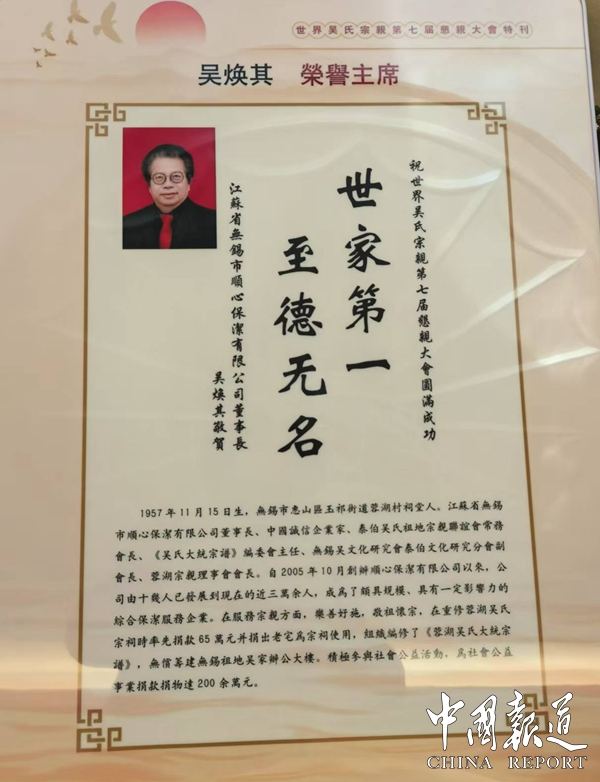 世界吴氏宗親第七届懇親大會特刊
吴焕其 榮譽主席
祝世界吴氏宗親第七届懇親大會圓滿成功
世家第一
至德无名
江蘇省無錫市順心保潔有限公司董事長
吴焕其敬賀
1957年11月15日生，無錫市惠山區玉祁街道蓉湖村祠堂人。江蘇省無錫
市順心保潔有限公司董事長、中國誠信企業家、泰伯吴氏祖地宗親聯誼會常務
會長、《吴氏大統宗譜》編委會主任、無錫吴文化研究會泰伯文化研究分會副
會長、蓉湖宗親理事會會長。自2005年10月創辦順心保潔有限公司以來，公
司由十幾人已發展到現在的近三萬余人，成爲了頗具規模、具有一定影響力的
綜合保潔服務企業。在服務宗親方面，樂善好施，敬祖懷宗，在重修蓉湖吴氏
宗祠時率先捐款65萬元并捐出老宅爲宗祠使用，組織編修了《蓉湖吴氏大統宗
譜》，無償籌建無錫祖地吴家辦公大樓。積極參與社會公益活動，爲社會公益
事業捐款捐物達200余萬元。
中國報道
CHINA REPORT